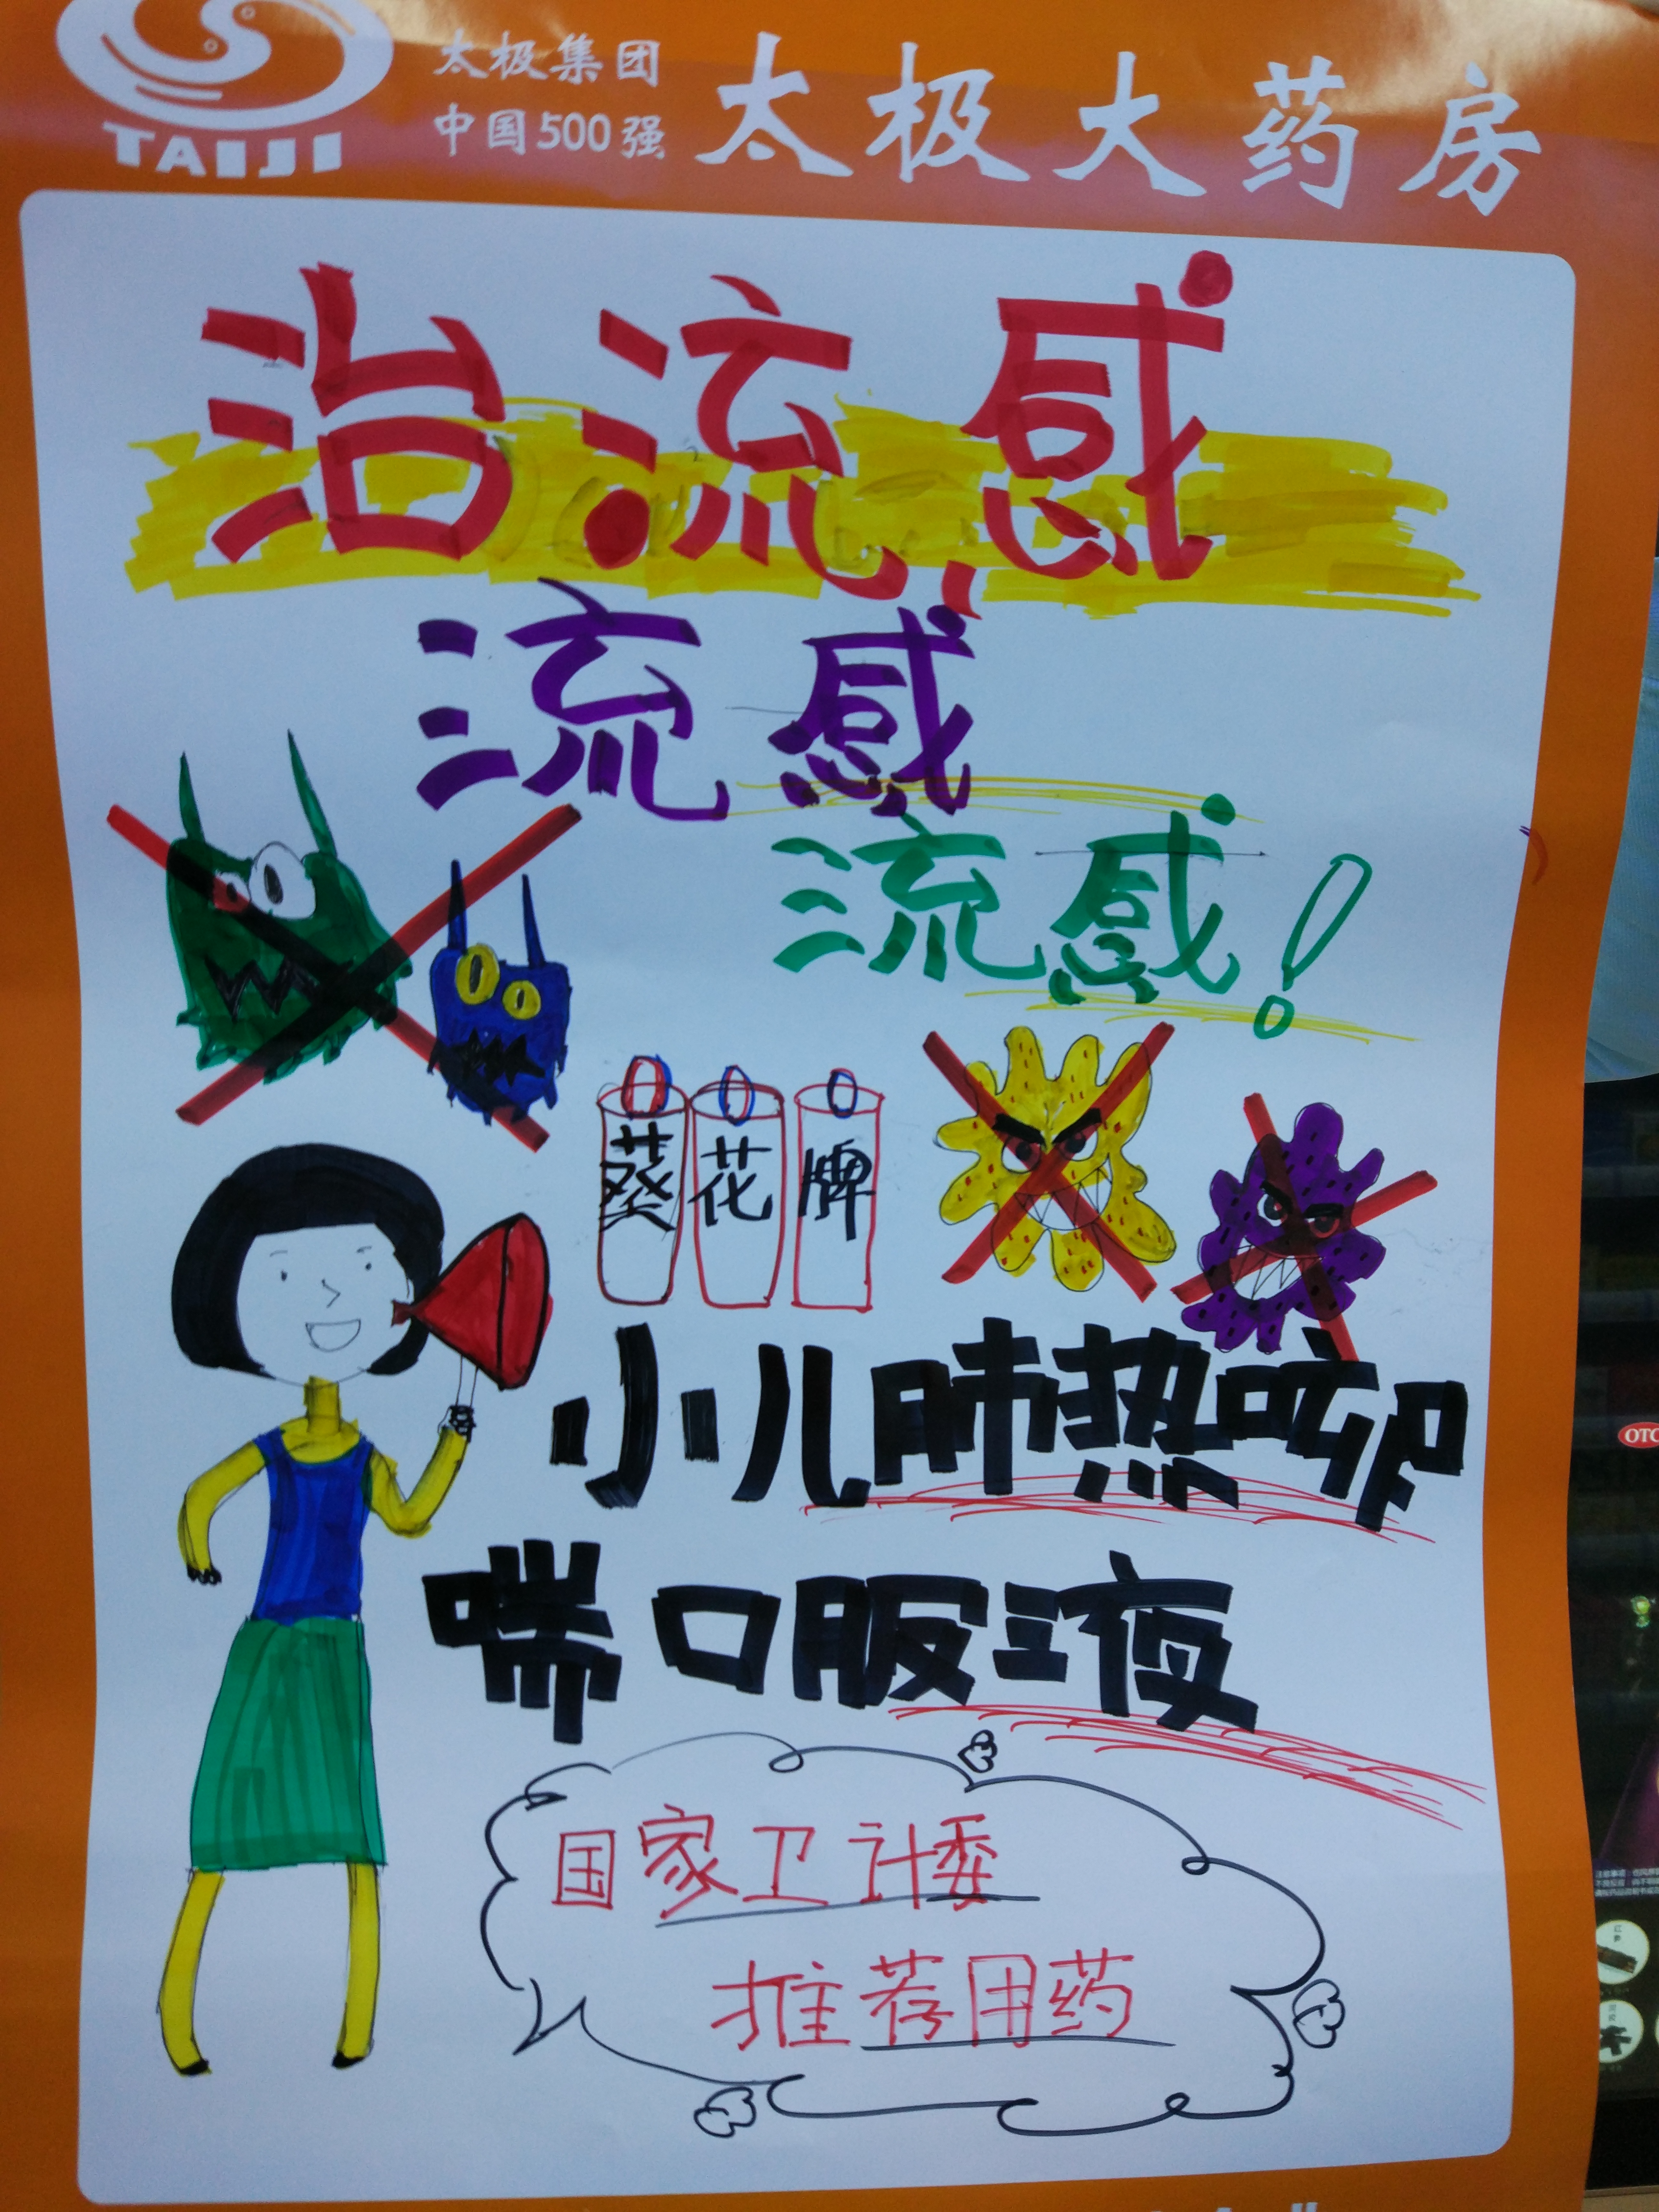 TAIJI
太极集团
中国500强
太极大药房
治流感
流感
流感!
葵花牌
小儿肺热咳
喘口服液
国家卫计委
推荐用药
OTC